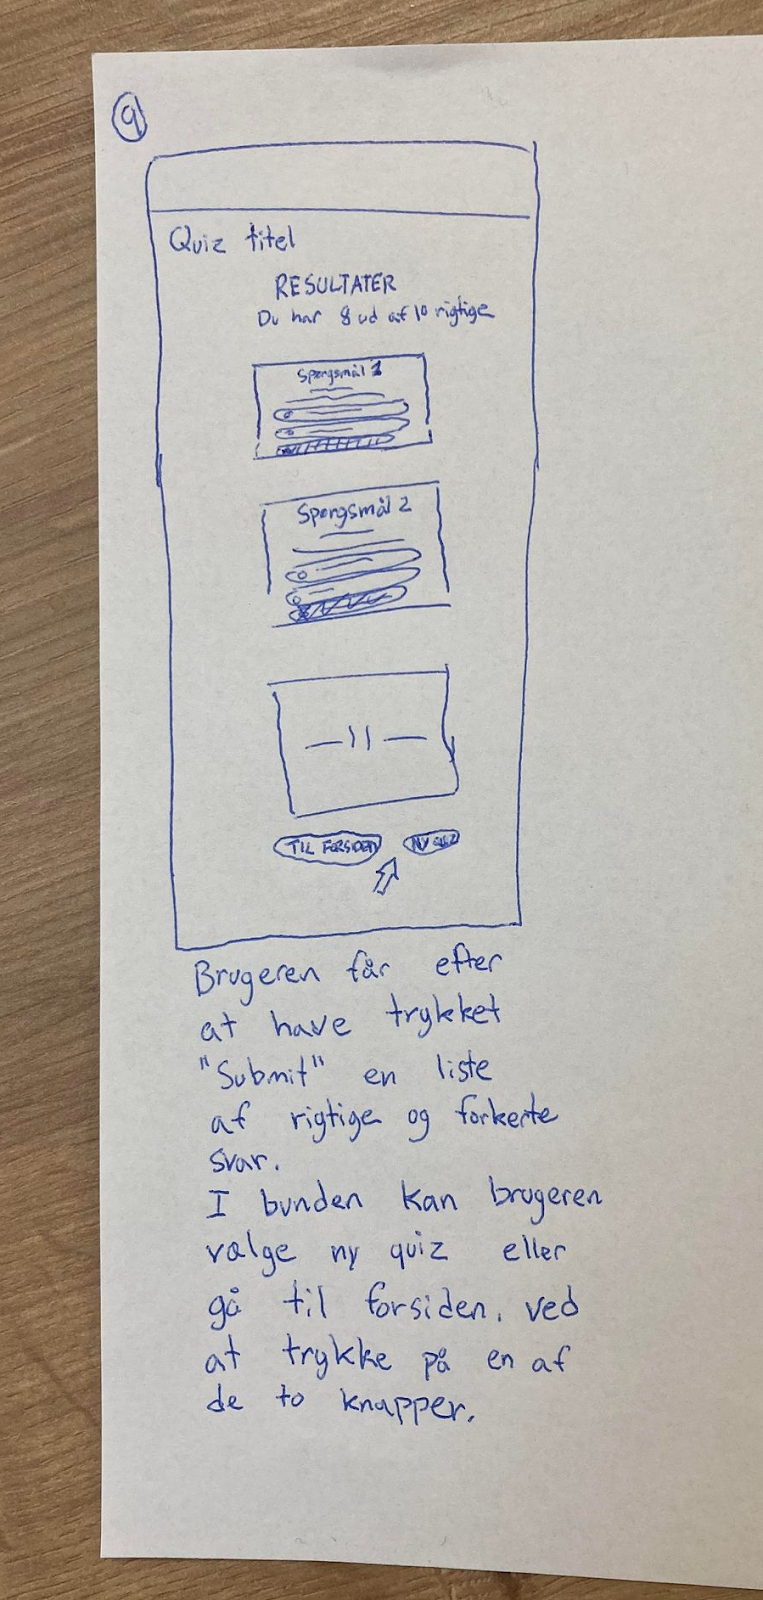 9
Quiz titel
RESULTATER
Du har 8 ud af 10 rigtige
Spørgsmål 1
Spørgsmål 2
— 11 —
TIL FORSIDEN NY QUIZ
Brugeren får efter
at have trykket
"Submit" en liste
af rigtige og forkerte
svar.
I bunden kan brugeren
vælge ny quiz eller
gå til forsiden, ved
at trykke på en af
de to knapper.